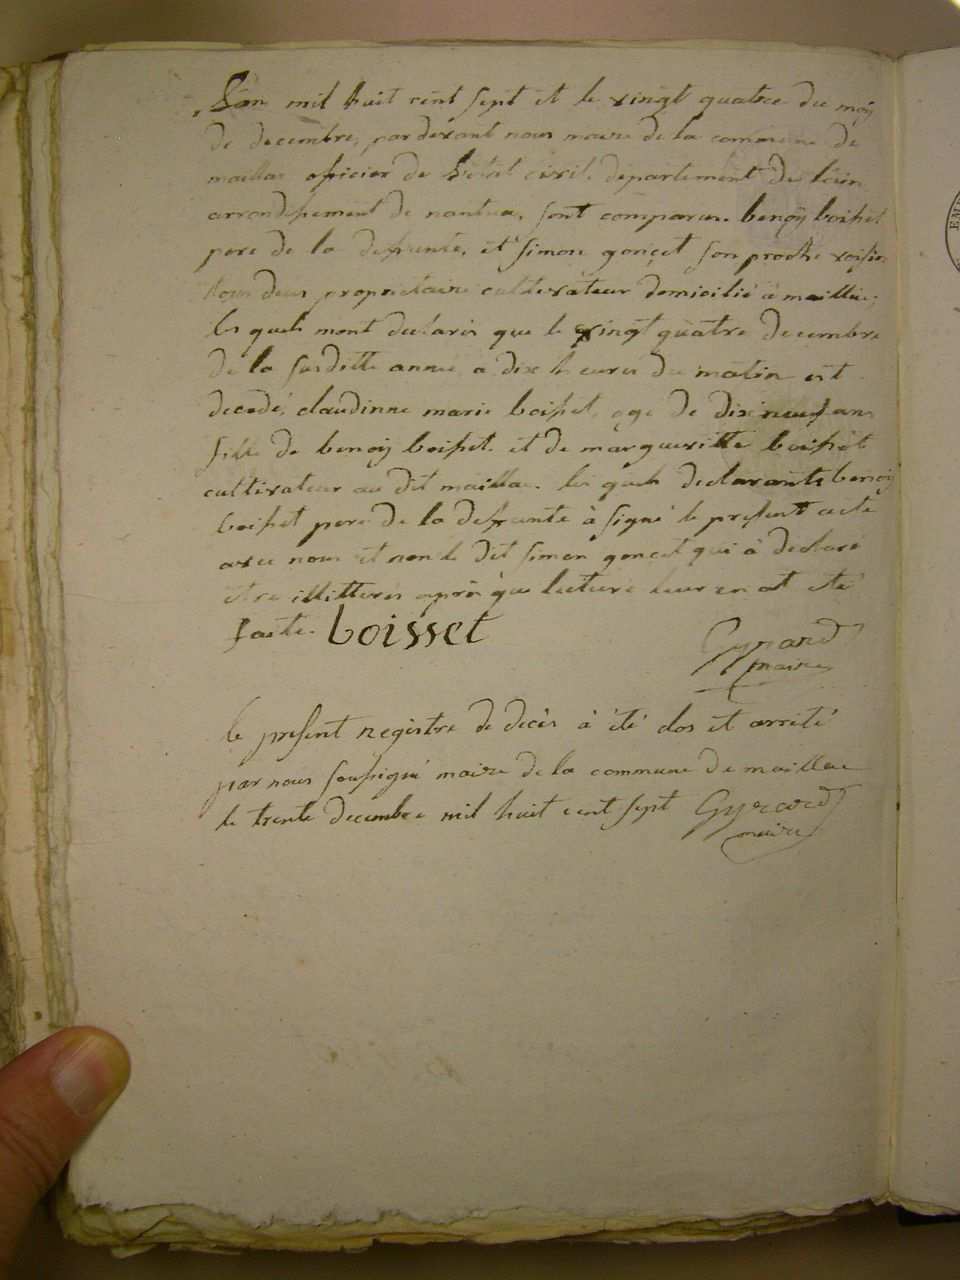 L'an mil huit cent sept et le vingt quatre du moy
de decembre, par devant nous maire de la commune de
maillac officier de l'etat civil departement de l'ain
arrondissement de nantua, sont comparus benoÿ boisset
pere de la defunte, et simon gonçet son proche voisin
tous deux propriétaire cultivateur domicilié à maillac;
les quels mont declarés que le vingt quatre decembre
de la susditte année a dix heures du matin est
decedé, claudinne marie boisset, age de dix neuf ans
fille de benoÿ boisset et de margueritte boisset
cultivateur au dit maillac. les quels declarants benoÿ
boisset pere de la defunte à signé le present acte
avec nous et non le dit simon gonçet qui à declaré
etre illitteres après que lecture leur en at eté
faite. boisset
Gyrard
maire
le present registre de decès à été clos et arreté
par nous soussigné maire de la commune de maillac
le trente decembre mil huit cent sept Gyrard
maire
EMP